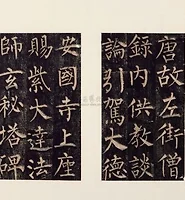 唐故左街僧
錄內供教談
論引駕大德
安國寺上座
賜紫大達法
師玄秘塔碑